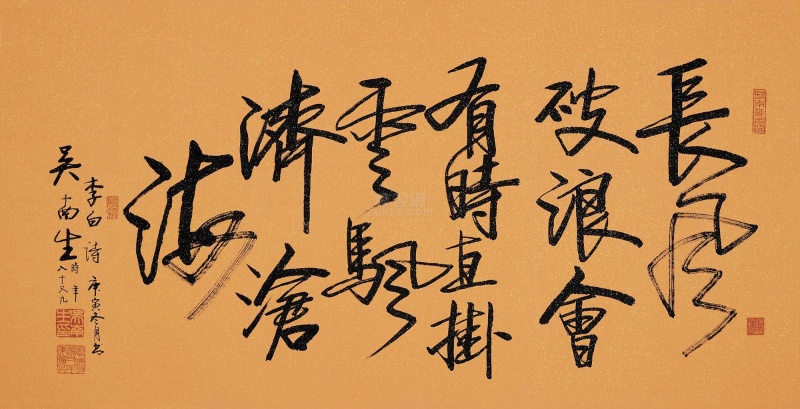 長風
破浪會
有時直掛
雲颿
濟滄
海
李白詩 庚寅冬月書
吴南生時年八十又九